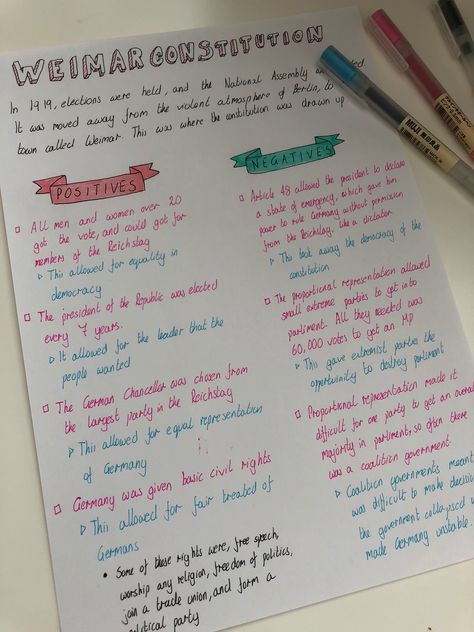 WEIMAR CONSTITUTION
In 1919, elections were held, and the National Assembly
It was moved away from the violent atmosphere of Berlin, to
town called Weimar. This was where the constitution was drawn up
POSITIVES
All men and women over 20
got the vote, and could got for
members of the Reichstag
This allowed for equality in
democracy
The president of the Republic was elected
every 7 years.
It allowed for the leader that the
people wanted
The German Chancellor was chosen from
the largest party in the Reichstag
This allowed for equal representation
of Germany
Germany was given basic civil rights
This allowed for fair treated of
Germans
Some of those rights were, free speech,
worship any religion, freedom of politics,
join a trade union, and form a
political party
NEGATIVES
Article 48 allowed the president to declare
a state of emergency, which gave him
power to rule Germany without permission
from the Reichstag. Like a dictator
This took away the democracy of the
constitution
The proportional representation allowed
small extreme parties to get into
parliment. All they needed was
60,000 votes to get an MP
This gave extremist parties the
opportunity to destroy parliment
Proportional representation made it
difficult for one party to get an overall
majority in parliment, so often there
was a coalition government.
Coalition governments meant
was difficult to make
the government collapsed
made Germany unstable.
MUJ 無印良品